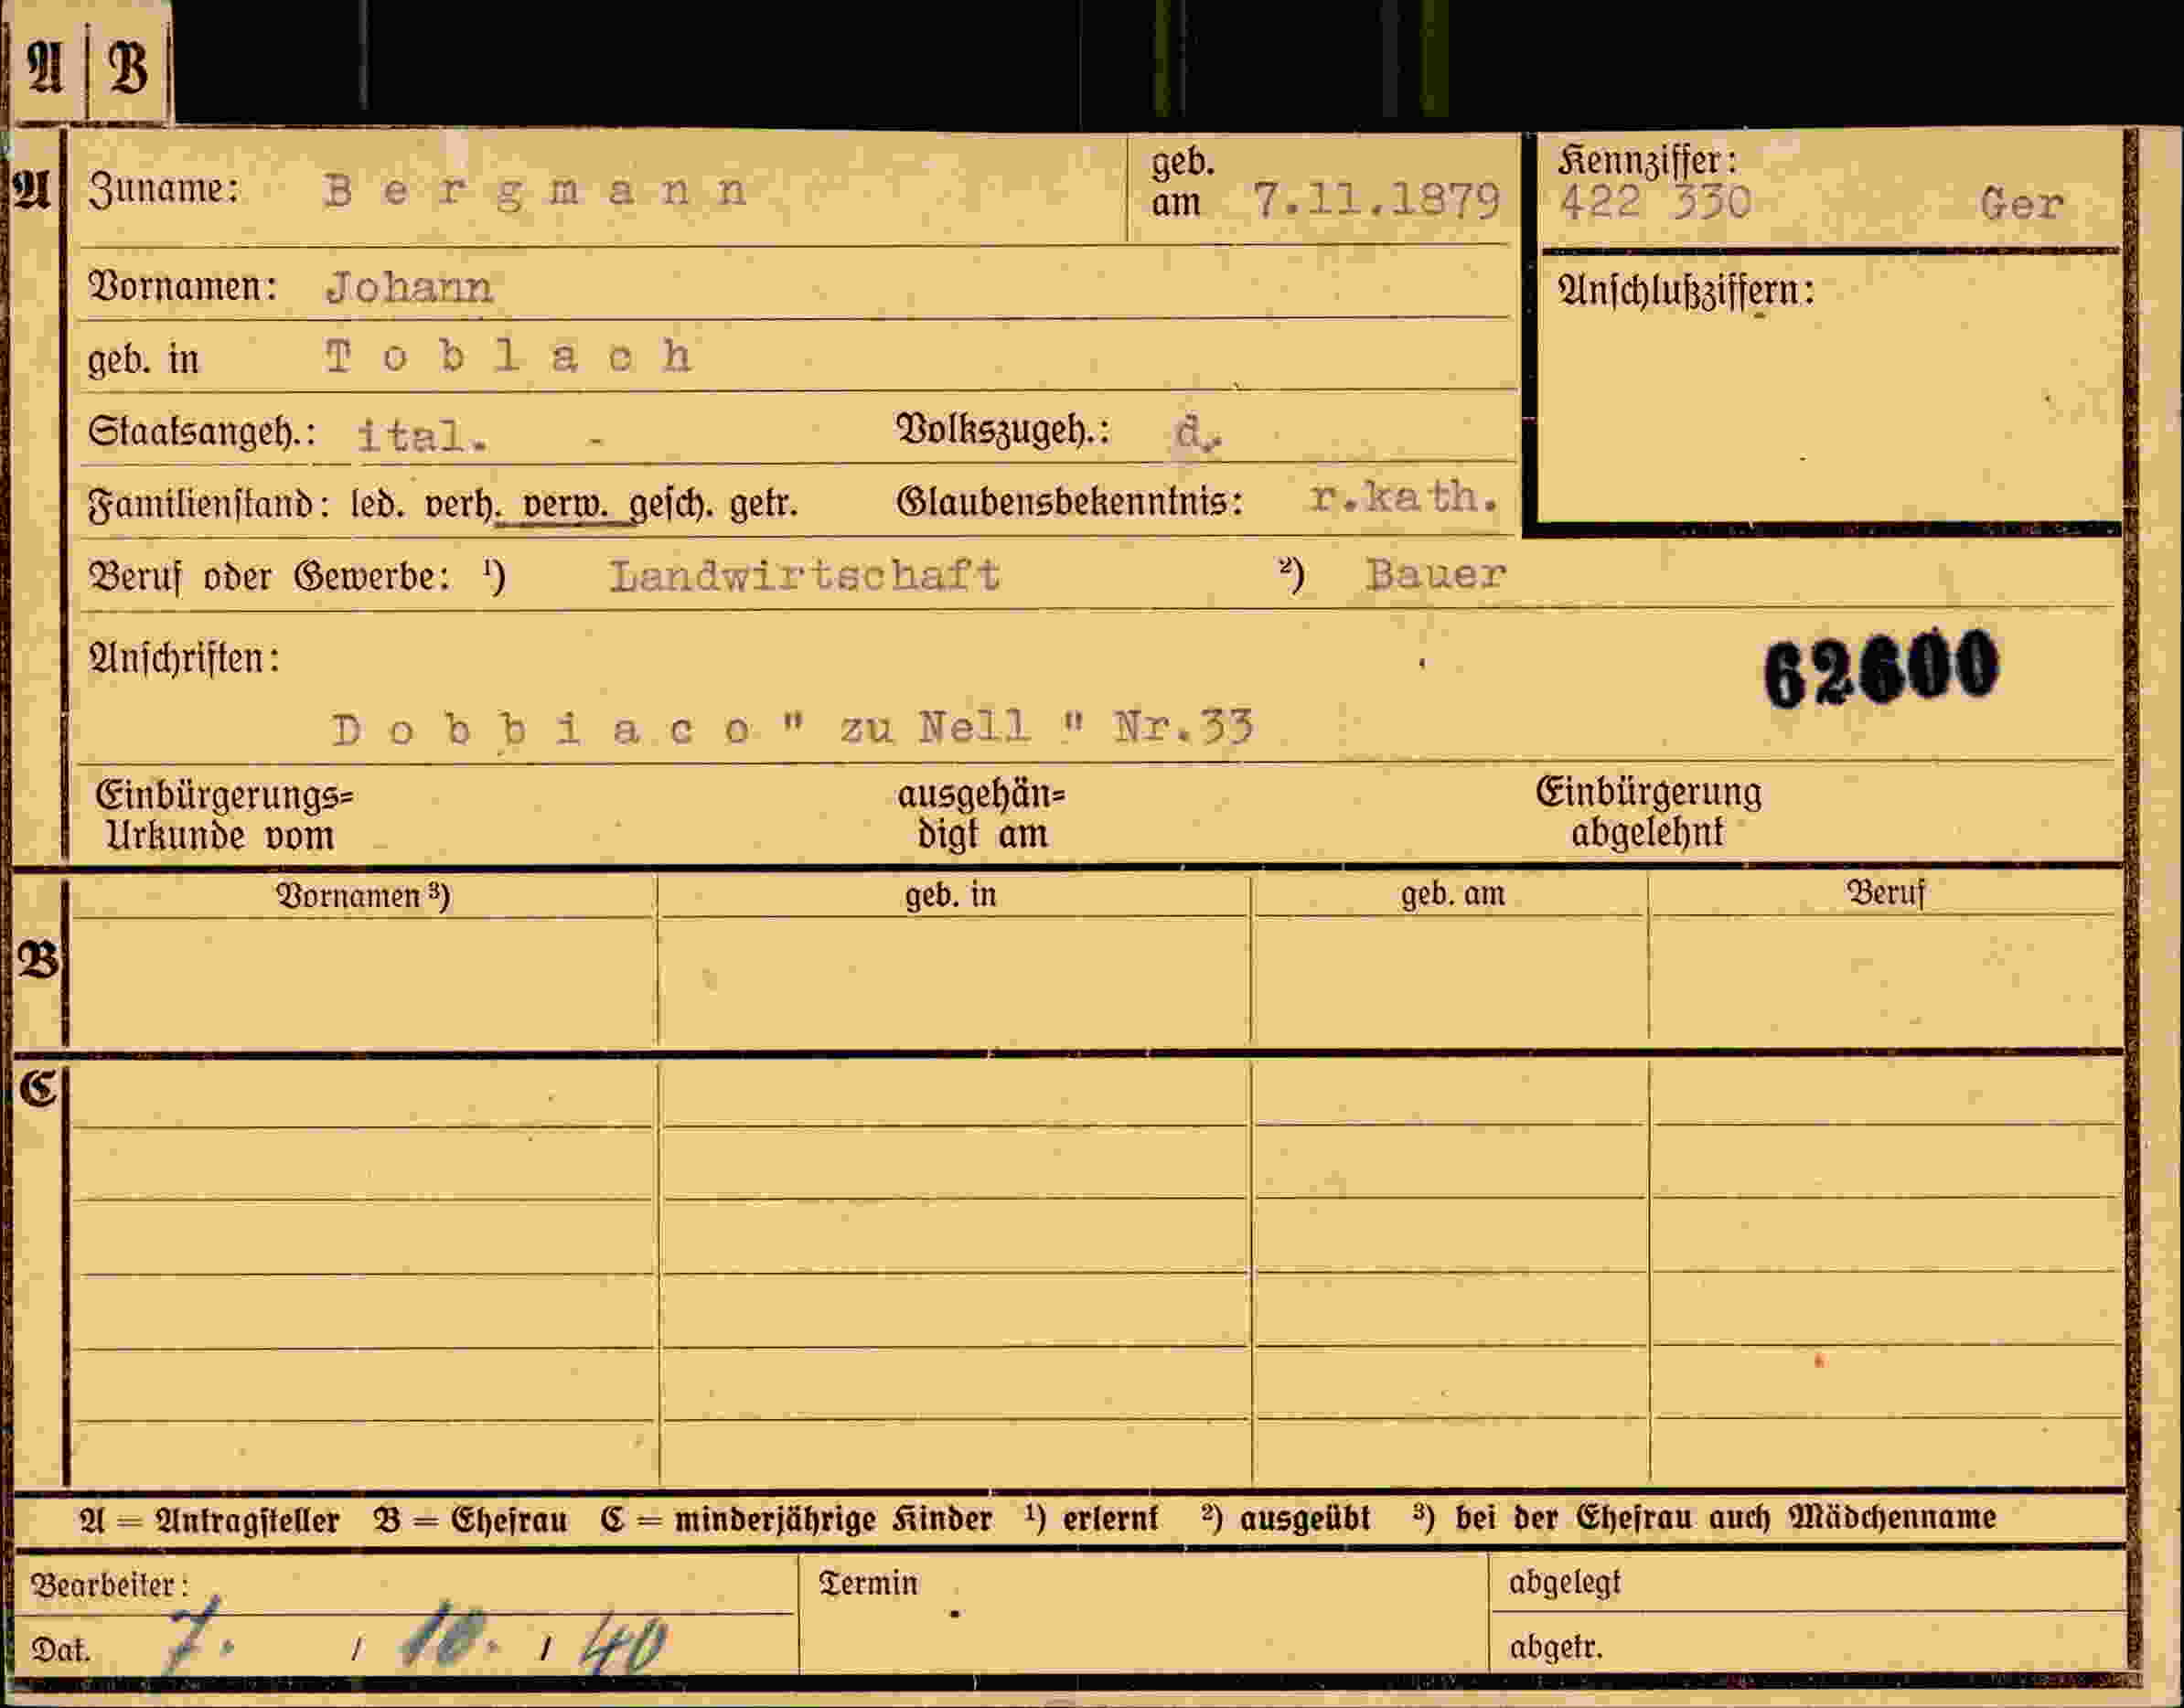 A | B
A Zuname: Bergmann geb. am 7.11.1879 Kennziffer: 422 330 Ger
Vornamen: Johann Anschlußziffern:
geb. in Toblach
Staatsangeh.: ital. - Volkszugeh.: d.
Familienstand: led. verh. verw. gesch. getr. Glaubensbekenntnis: r.kath.
Beruf oder Gewerbe: ¹) Landwirtschaft ²) Bauer
Anschriften: 62600
Dobbiaco " zu Nell " Nr.33
Einbürgerungs= ausgehän= Einbürgerung
Urkunde vom digt am abgelehnt
Vornamen ³) geb. in geb. am Beruf
B
C
A = Antragsteller B = Ehefrau C = minderjährige Kinder ¹) erlernt ²) ausgeübt ³) bei der Ehefrau auch Mädchenname
Bearbeiter: Termin abgelegt
Dat. 7. / 10. / 40 abgetr.